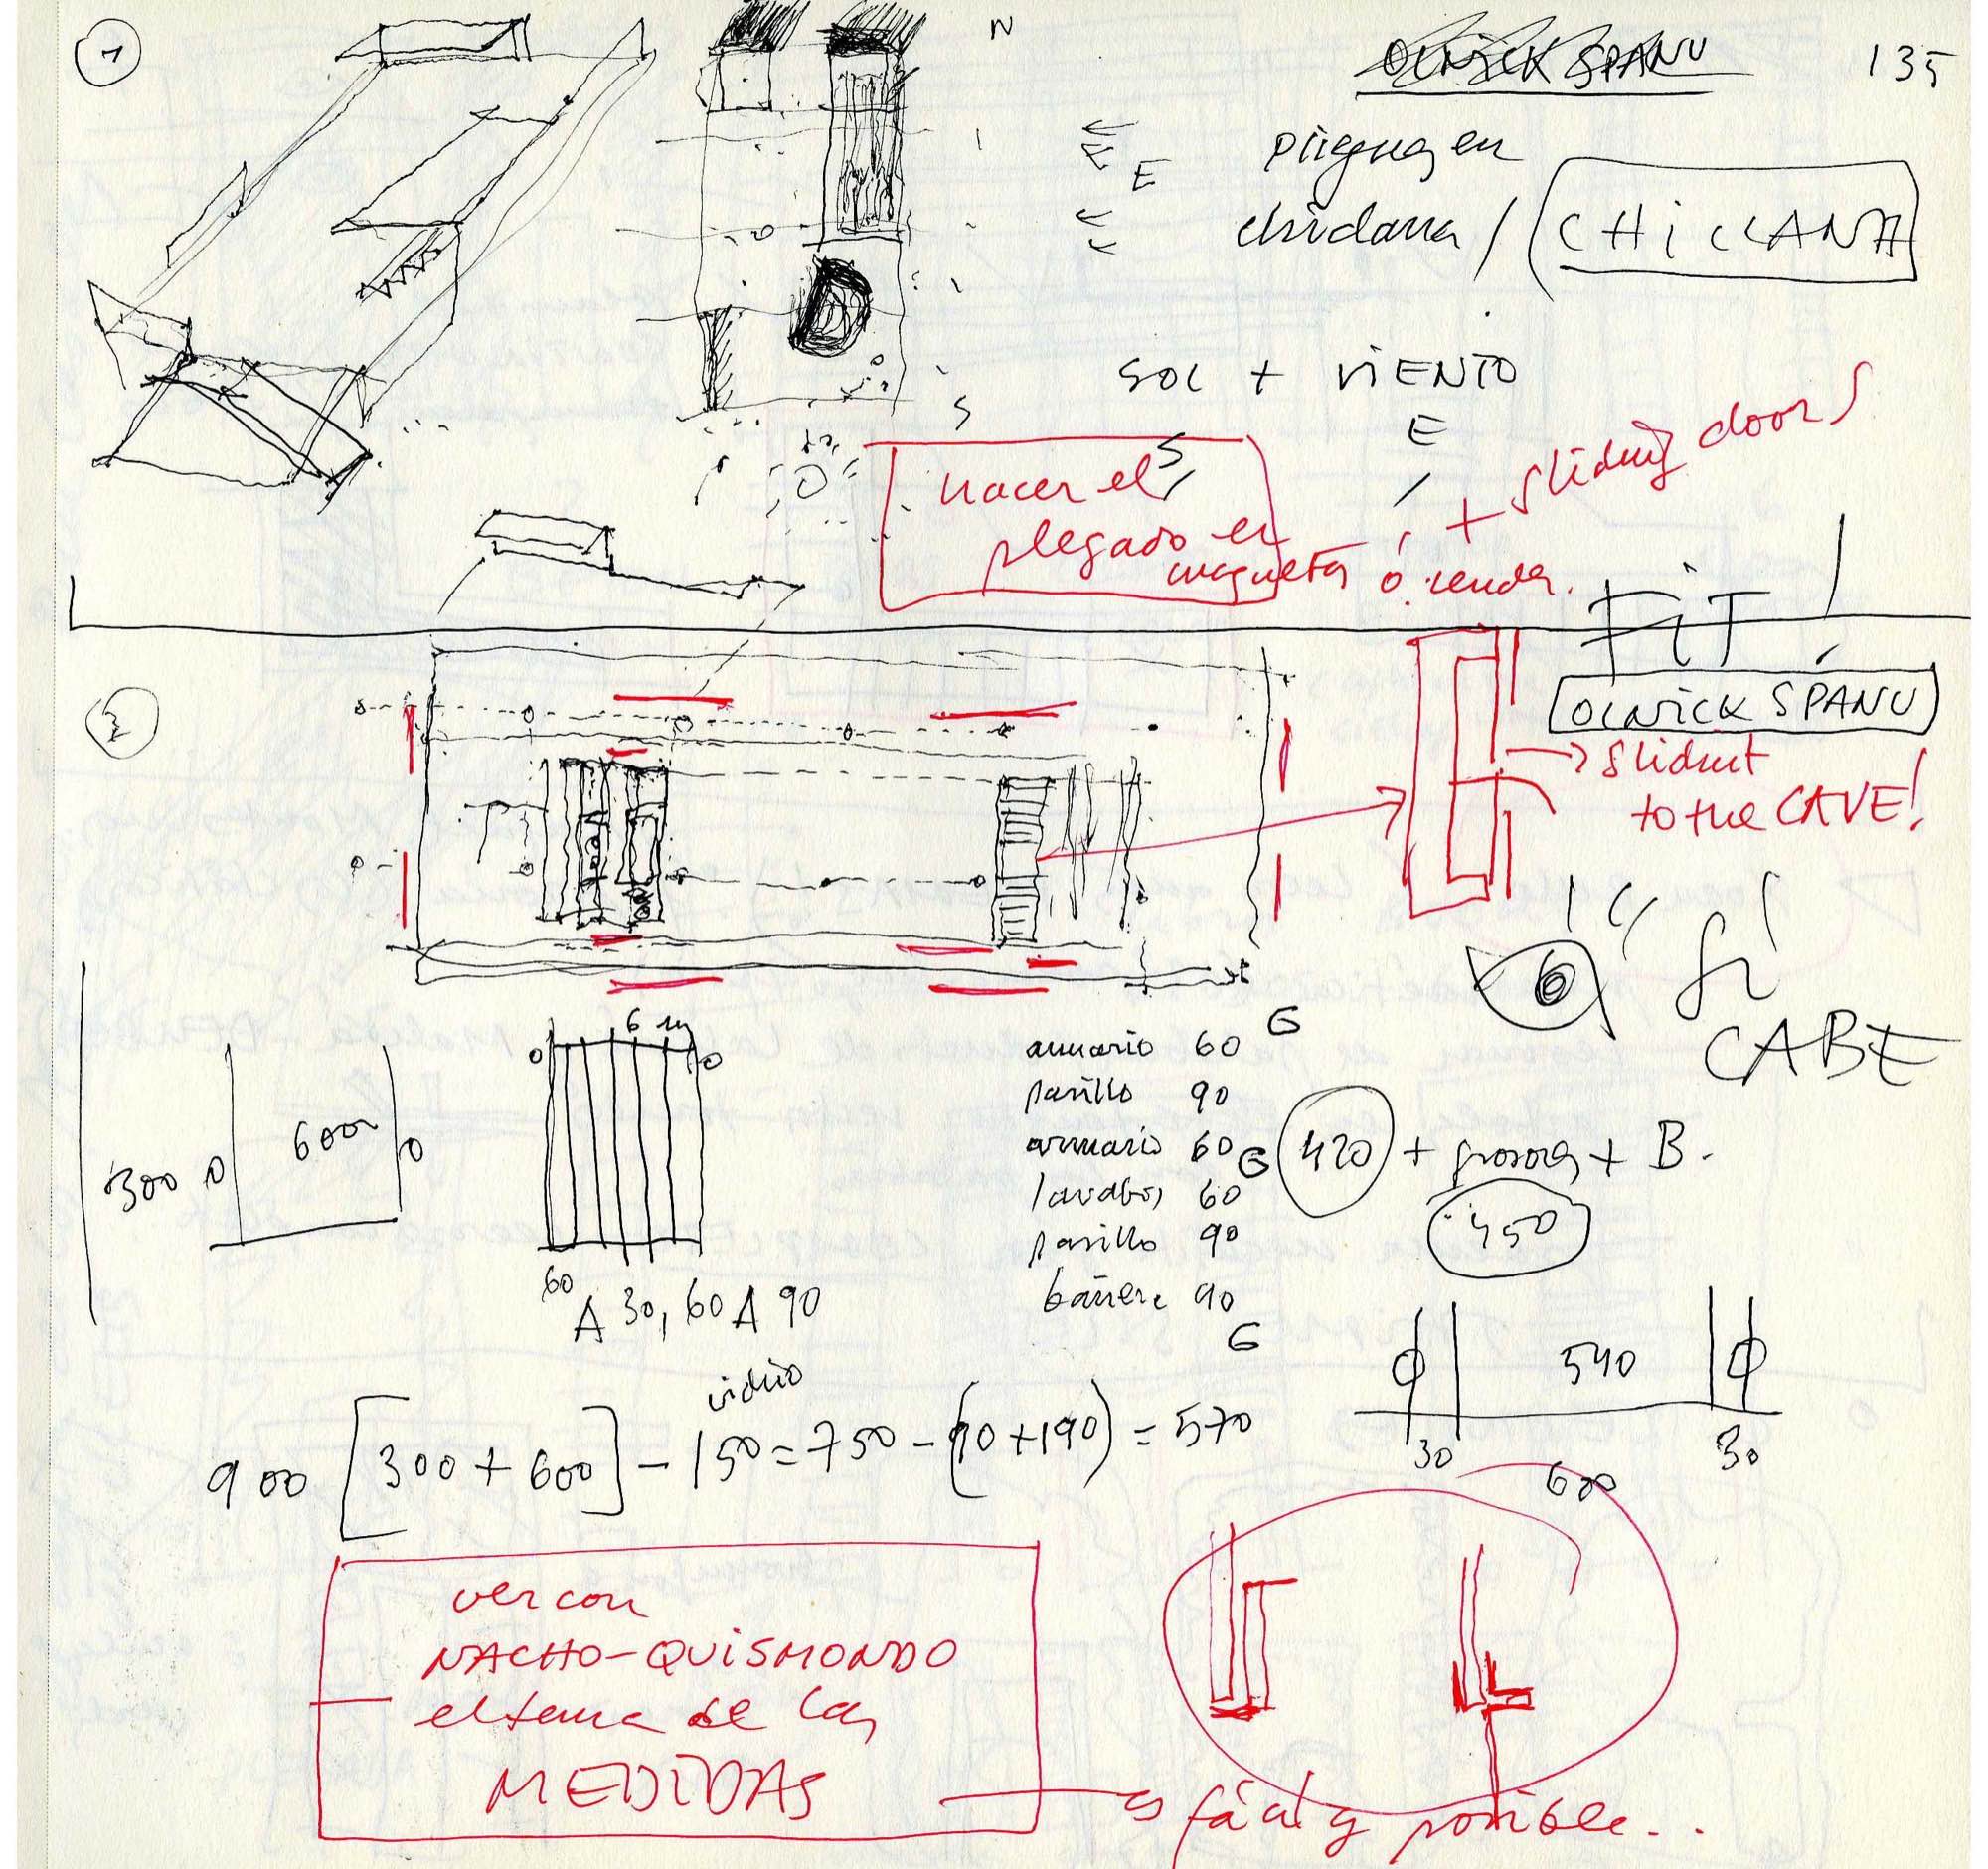 1
N
OLNICK SPANU
135
E
pliegues en
chiclana / CHiCLANA
SOL + ViENTO
S
E
S
hacer el
plegado en
maqueta ó render.
+ sliding doors
FiT!
2
OLNiCK SPANU
to the CAVE!
Sí
CABE
300
600
6 m
60
A 30, 60 A 90
G
armario 60
pasillo 90
armario 60 G
lavabos 60
pasillo 90
bañera 90
G
420 + grosores + B.
450
540
30
30
600
vidrio
900 [300 + 600] - 150 = 750 - (90 + 190) = 570
ver con
NACHO-QUiSMONDO
el tema de las
MEDiDAS
es fácil y posible..